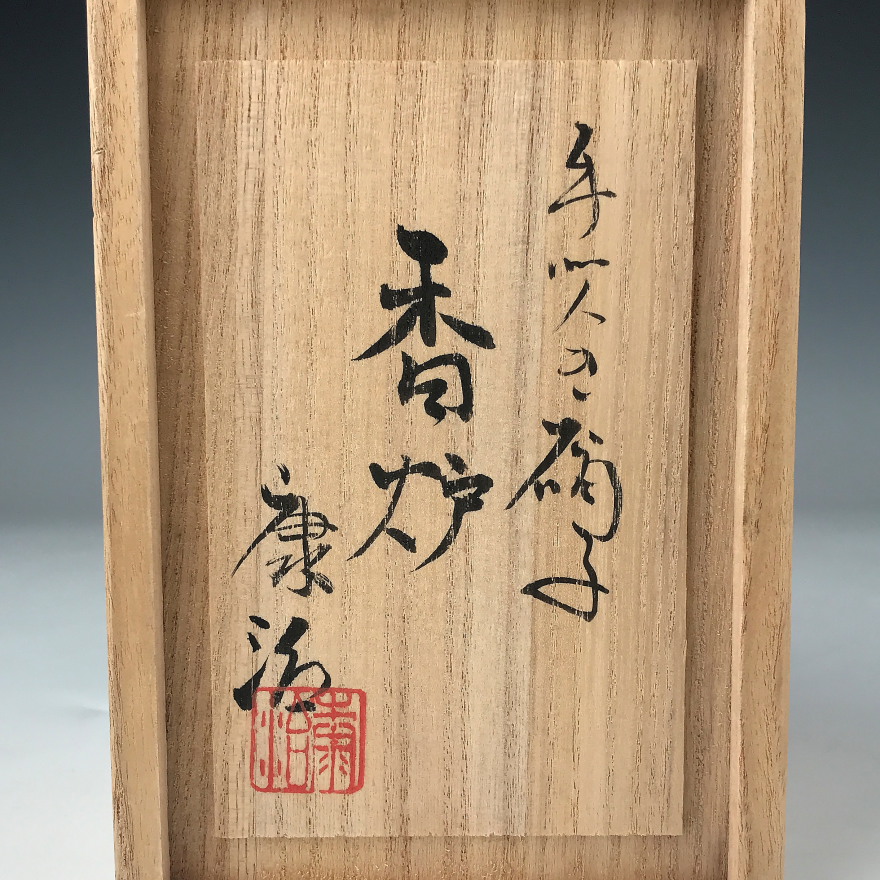 手吹き硝子
香炉
康治
康治